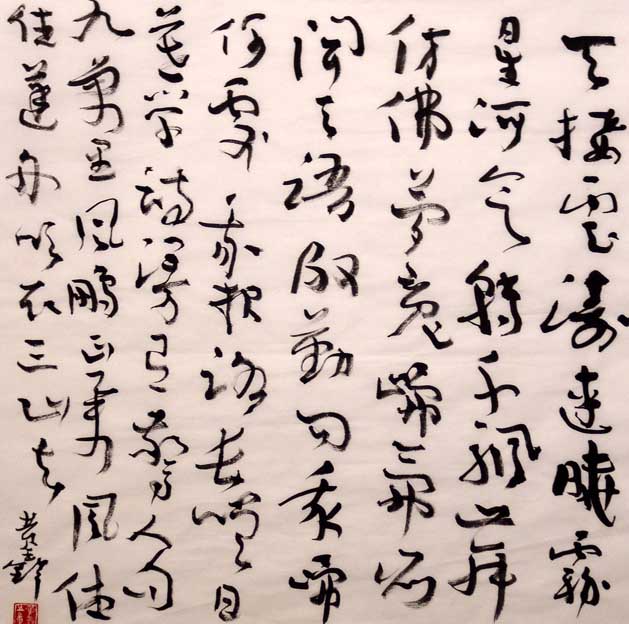 天接雲濤連曉霧
星河欲轉千帆舞
仿佛夢魂歸帝所
聞天語殷勤問我歸
何處我報路長嗟日
暮學詩漫有驚人句
九萬里風鵬正舉風休
住蓬舟吹取三山去